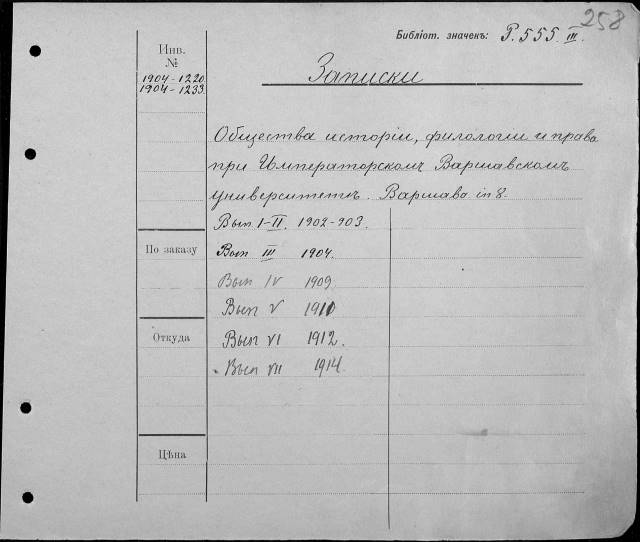 258
Библіот. значекъ: Р. 555 III.
Инв.
№
1904-1220
1904-1233
Записки
Общества исторіи, филологіи и права
при Императорскомъ Варшавскомъ
университетѣ. Варшава in 8.
Вып I-II. 1902-903.
По заказу
Вып III 1904.
Вып IV 1909
Вып V 1910
Откуда
Вып VI 1912.
Вып VII 1914.
Цѣна